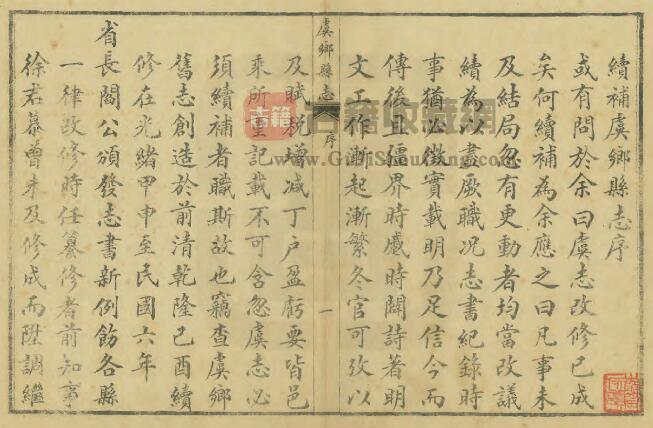 續補虞鄉縣志序
或有問於余曰虞志改修已成
矣何續補為余應之曰凡事未
及結局忽有更動者均當改議
續為以盡厥職况志書紀錄時
事猶必徵實載明乃足信今而
傳後且疆界時蹙時闢詩著明
文工作漸起漸繁冬官可攷以
虞鄉縣志
序
一
及賦稅增減丁戶盈虧要皆邑
乘所重記載不可含忽虞志必
須續補者職斯故也竊查虞鄉
舊志創造於前清乾隆己酉續
修在光緒甲申至民國六年
省長閻公頒發志書新例飭各縣
一律改修時任纂修者前知事
徐君慕曾未及修成而陞調繼
古籍
古籍收藏网
www.GuJiShouCang.com